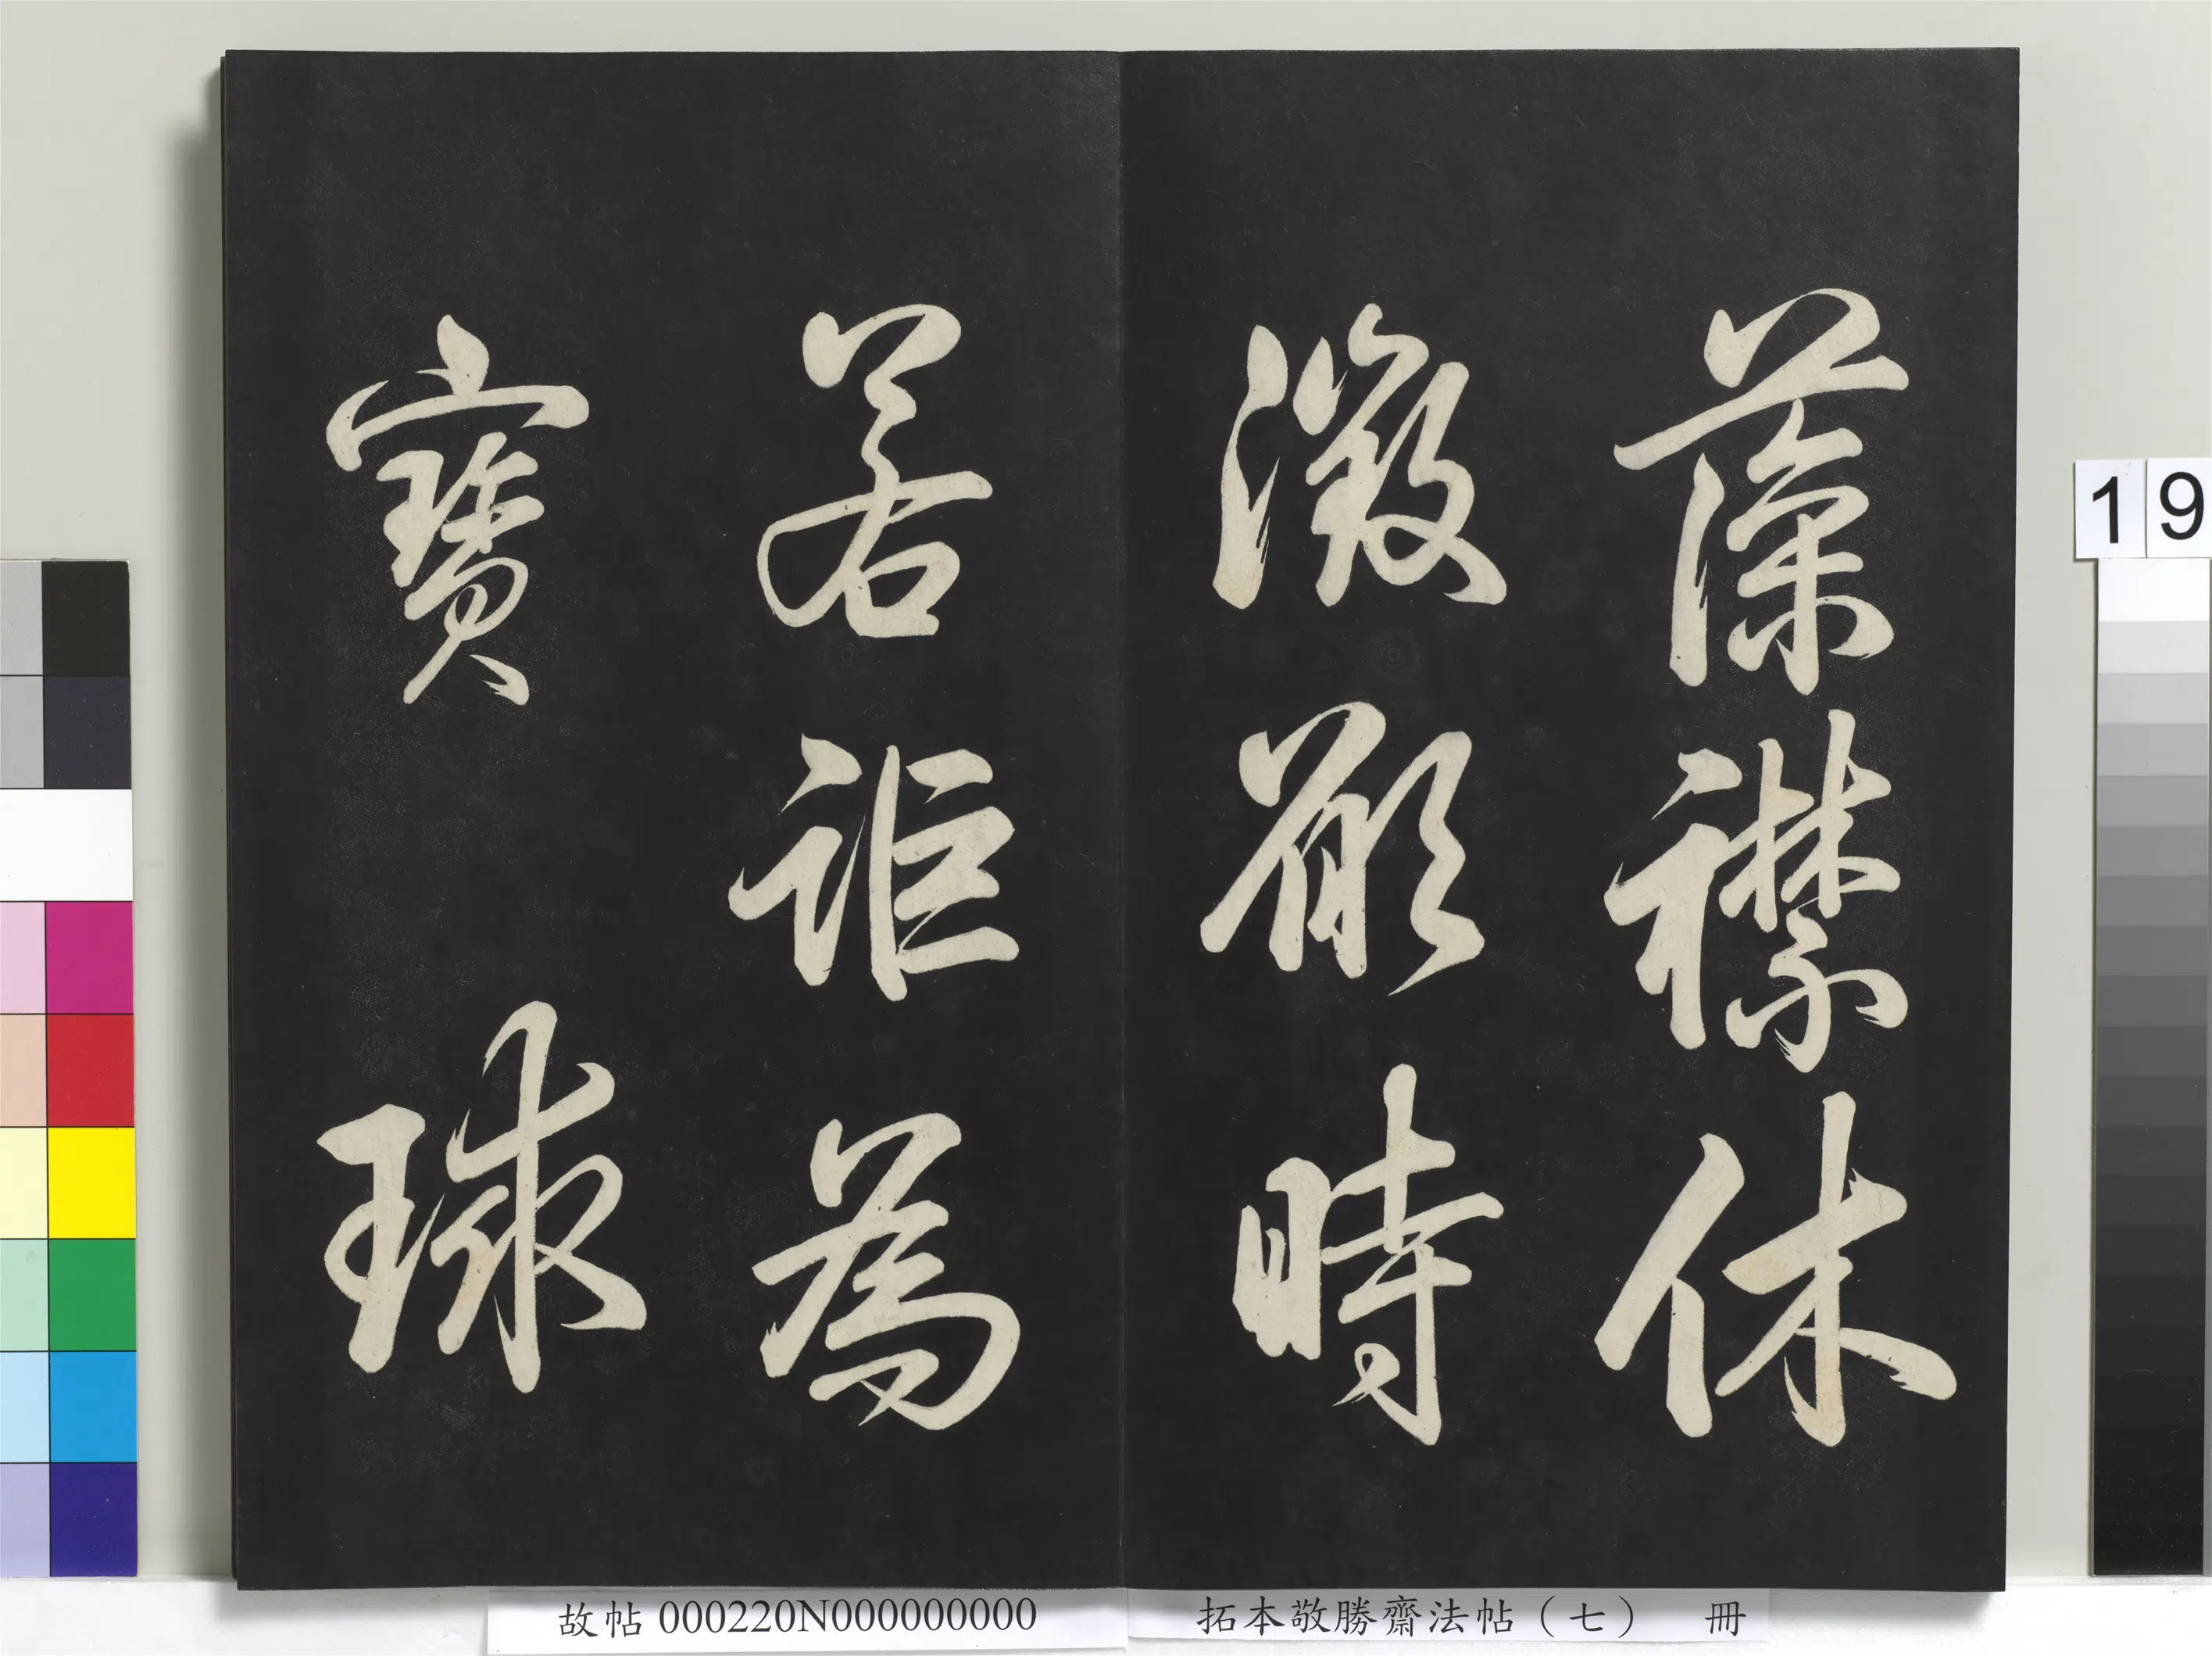 藻襟休
徵願時
若詎為
寶球
19
故帖000220N000000000
拓本敬勝齋法帖（七） 冊